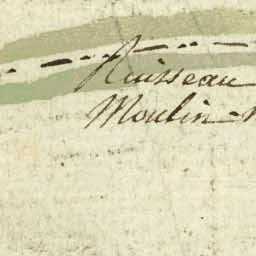 Ruisseau
Moulin-